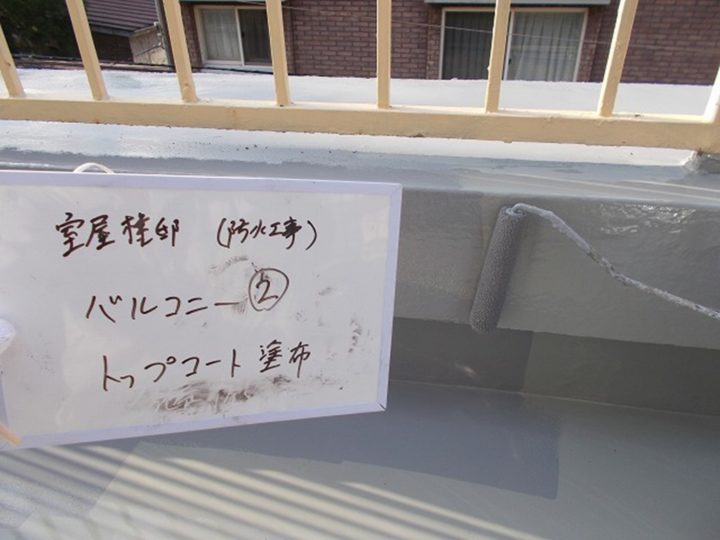 室屋様邸 (防水工事)
バルコニー②
トップコート塗布